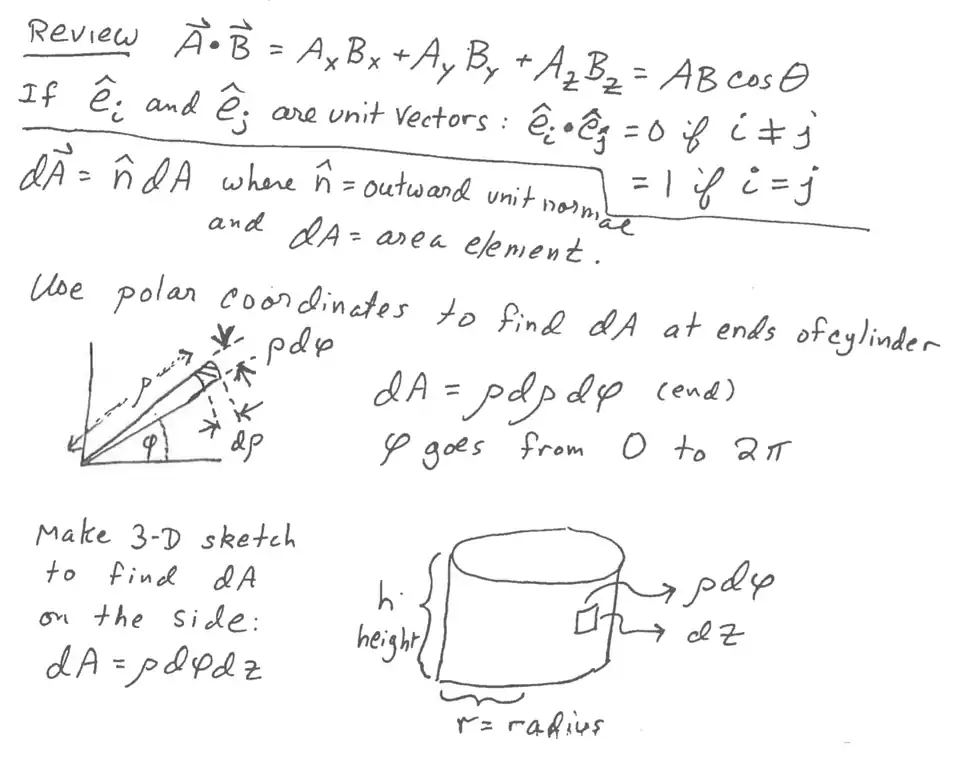 Review A⃗•B⃗ = AₓBₓ + AᵧBᵧ + A_zB_z = AB cosθ
If ê_i and ê_j are unit vectors : ê_i•ê_j = 0 if i ≠ j
= 1 if i = j
dA⃗ = n̂ dA where n̂ = outward unit normal
and dA = area element.
Use polar coordinates to find dA at ends of cylinder
ρ
ρdφ
φ
dρ
dA = ρdρdφ (end)
φ goes from 0 to 2π
Make 3-D sketch
to find dA
on the side:
dA = ρdφdz
h
height
ρdφ
dz
r = radius